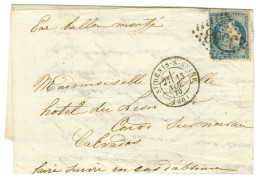 Par ballon monté
ST DENIS-S-SEINE
2E 13
NOV.
70
(60)
Mademoiselle
hotel du Lion
Condé sur noireau
Calvados
faire suivre en cas d'absence